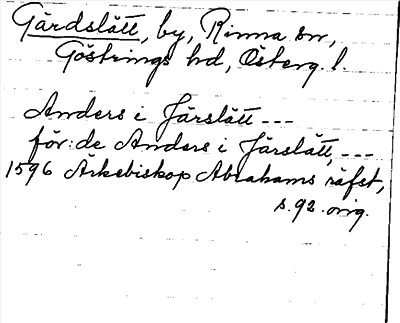 Gärdslätt, by, Rinna sn,
Göstrings hd, Österg. l.
Anders i Järslätt ---
för: de Anders i Järslätt, ---
1596 Ärkebiskop Abrahams räfst,
s. 92. orig.